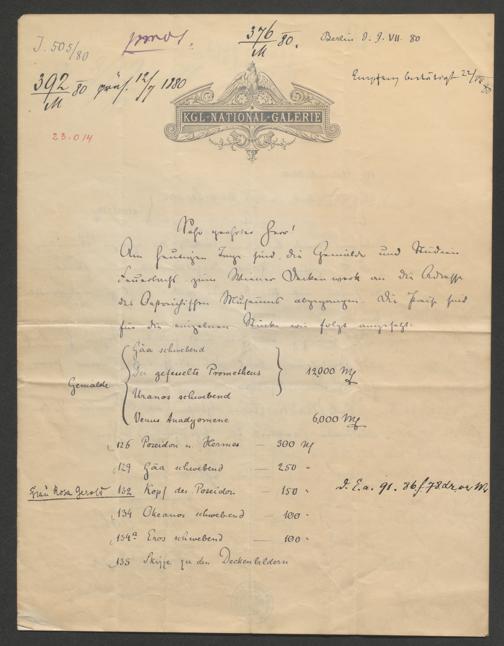 J. 505/80
376/M 80.
Berlin d. 9. VII. 80
392/M 80 präs. 12/7 1880
Empfang bestätigt 22/VII 80
23014
KGL-NATIONAL-GALERIE
Sehr geehrter Herr!
Am heutigen Tage sind die Gemälde und Studien
Feuerbachs zum Wiener Deckenwerk an die Adresse
des Oestreichischen Museums abgegangen. Die Preise sind
für die einzelnen Stücke wie folgt angesetzt:
Gäa schwebend
Der gefesselte Prometheus
12,000 M
Gemälde
Uranos schwebend
Venus Anadyomene 6,000 M
126 Poseidon u. Hermes — 300 M
129 Gäa schwebend — 250 "
Frau Rosa Gerold 132 Kopf des Poseidon — 150 "
134 Okeanos schwebend — 100 "
134a Eros schwebend — 100 "
135 Skizze zu den Deckenbildern